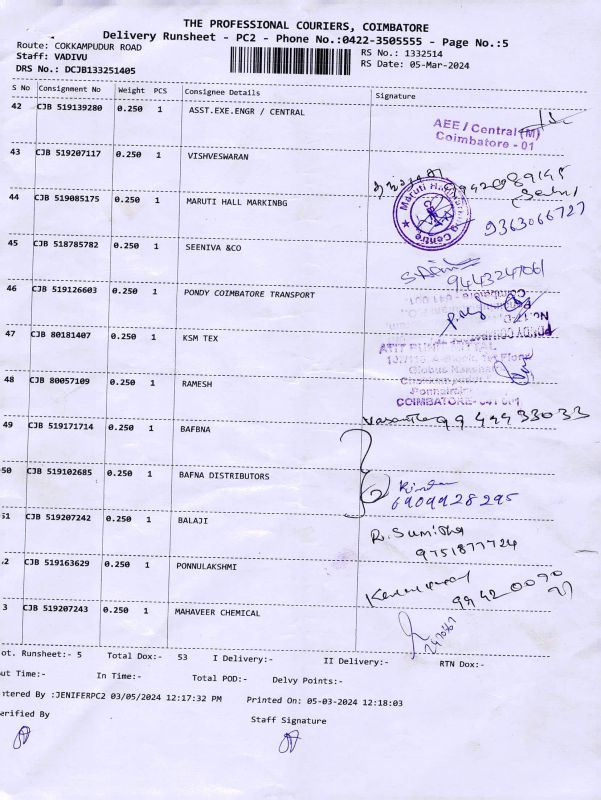 THE PROFESSIONAL COURIERS, COIMBATORE
Delivery Runsheet - PC2 - Phone No.:0422-3505555 - Page No.:5
Route: COKKAMPUDUR ROAD
RS No.: 1332514
Staff: VADIVU
RS Date: 05-Mar-2024
DRS No.: DCJB133251405
S No Consignment No Weight PCS Consignee Details Signature
42 CJB 519139280 0.250 1 ASST.EXE.ENGR / CENTRAL
AEE / Central (M)
Coimbatore - 01
43 CJB 519207117 0.250 1 VISHVESWARAN
9942089145
44 CJB 519085175 0.250 1 MARUTI HALL MARKINBG
9363066727
45 CJB 518785782 0.250 1 SEENIVA &CO
9443247061
46 CJB 519126603 0.250 1 PONDY COIMBATORE TRANSPORT
47 CJB 80181407 0.250 1 KSM TEX
48 CJB 80057109 0.250 1 RAMESH
COIMBATORE- 641 001
9944433033
49 CJB 519171714 0.250 1 BAFBNA
50 CJB 519102685 0.250 1 BAFNA DISTRIBUTORS
6909928295
51 CJB 519207242 0.250 1 BALAJI
R. Sumitha
9751877724
2 CJB 519163629 0.250 1 PONNULAKSHMI
3 CJB 519207243 0.250 1 MAHAVEER CHEMICAL
ot. Runsheet:- 5 Total Dox:- 53 I Delivery:- II Delivery:- RTN Dox:-
out Time:- In Time:- Total POD:- Delvy Points:-
ntered By :JENIFERPC2 03/05/2024 12:17:32 PM Printed On: 05-03-2024 12:18:03
erified By Staff Signature